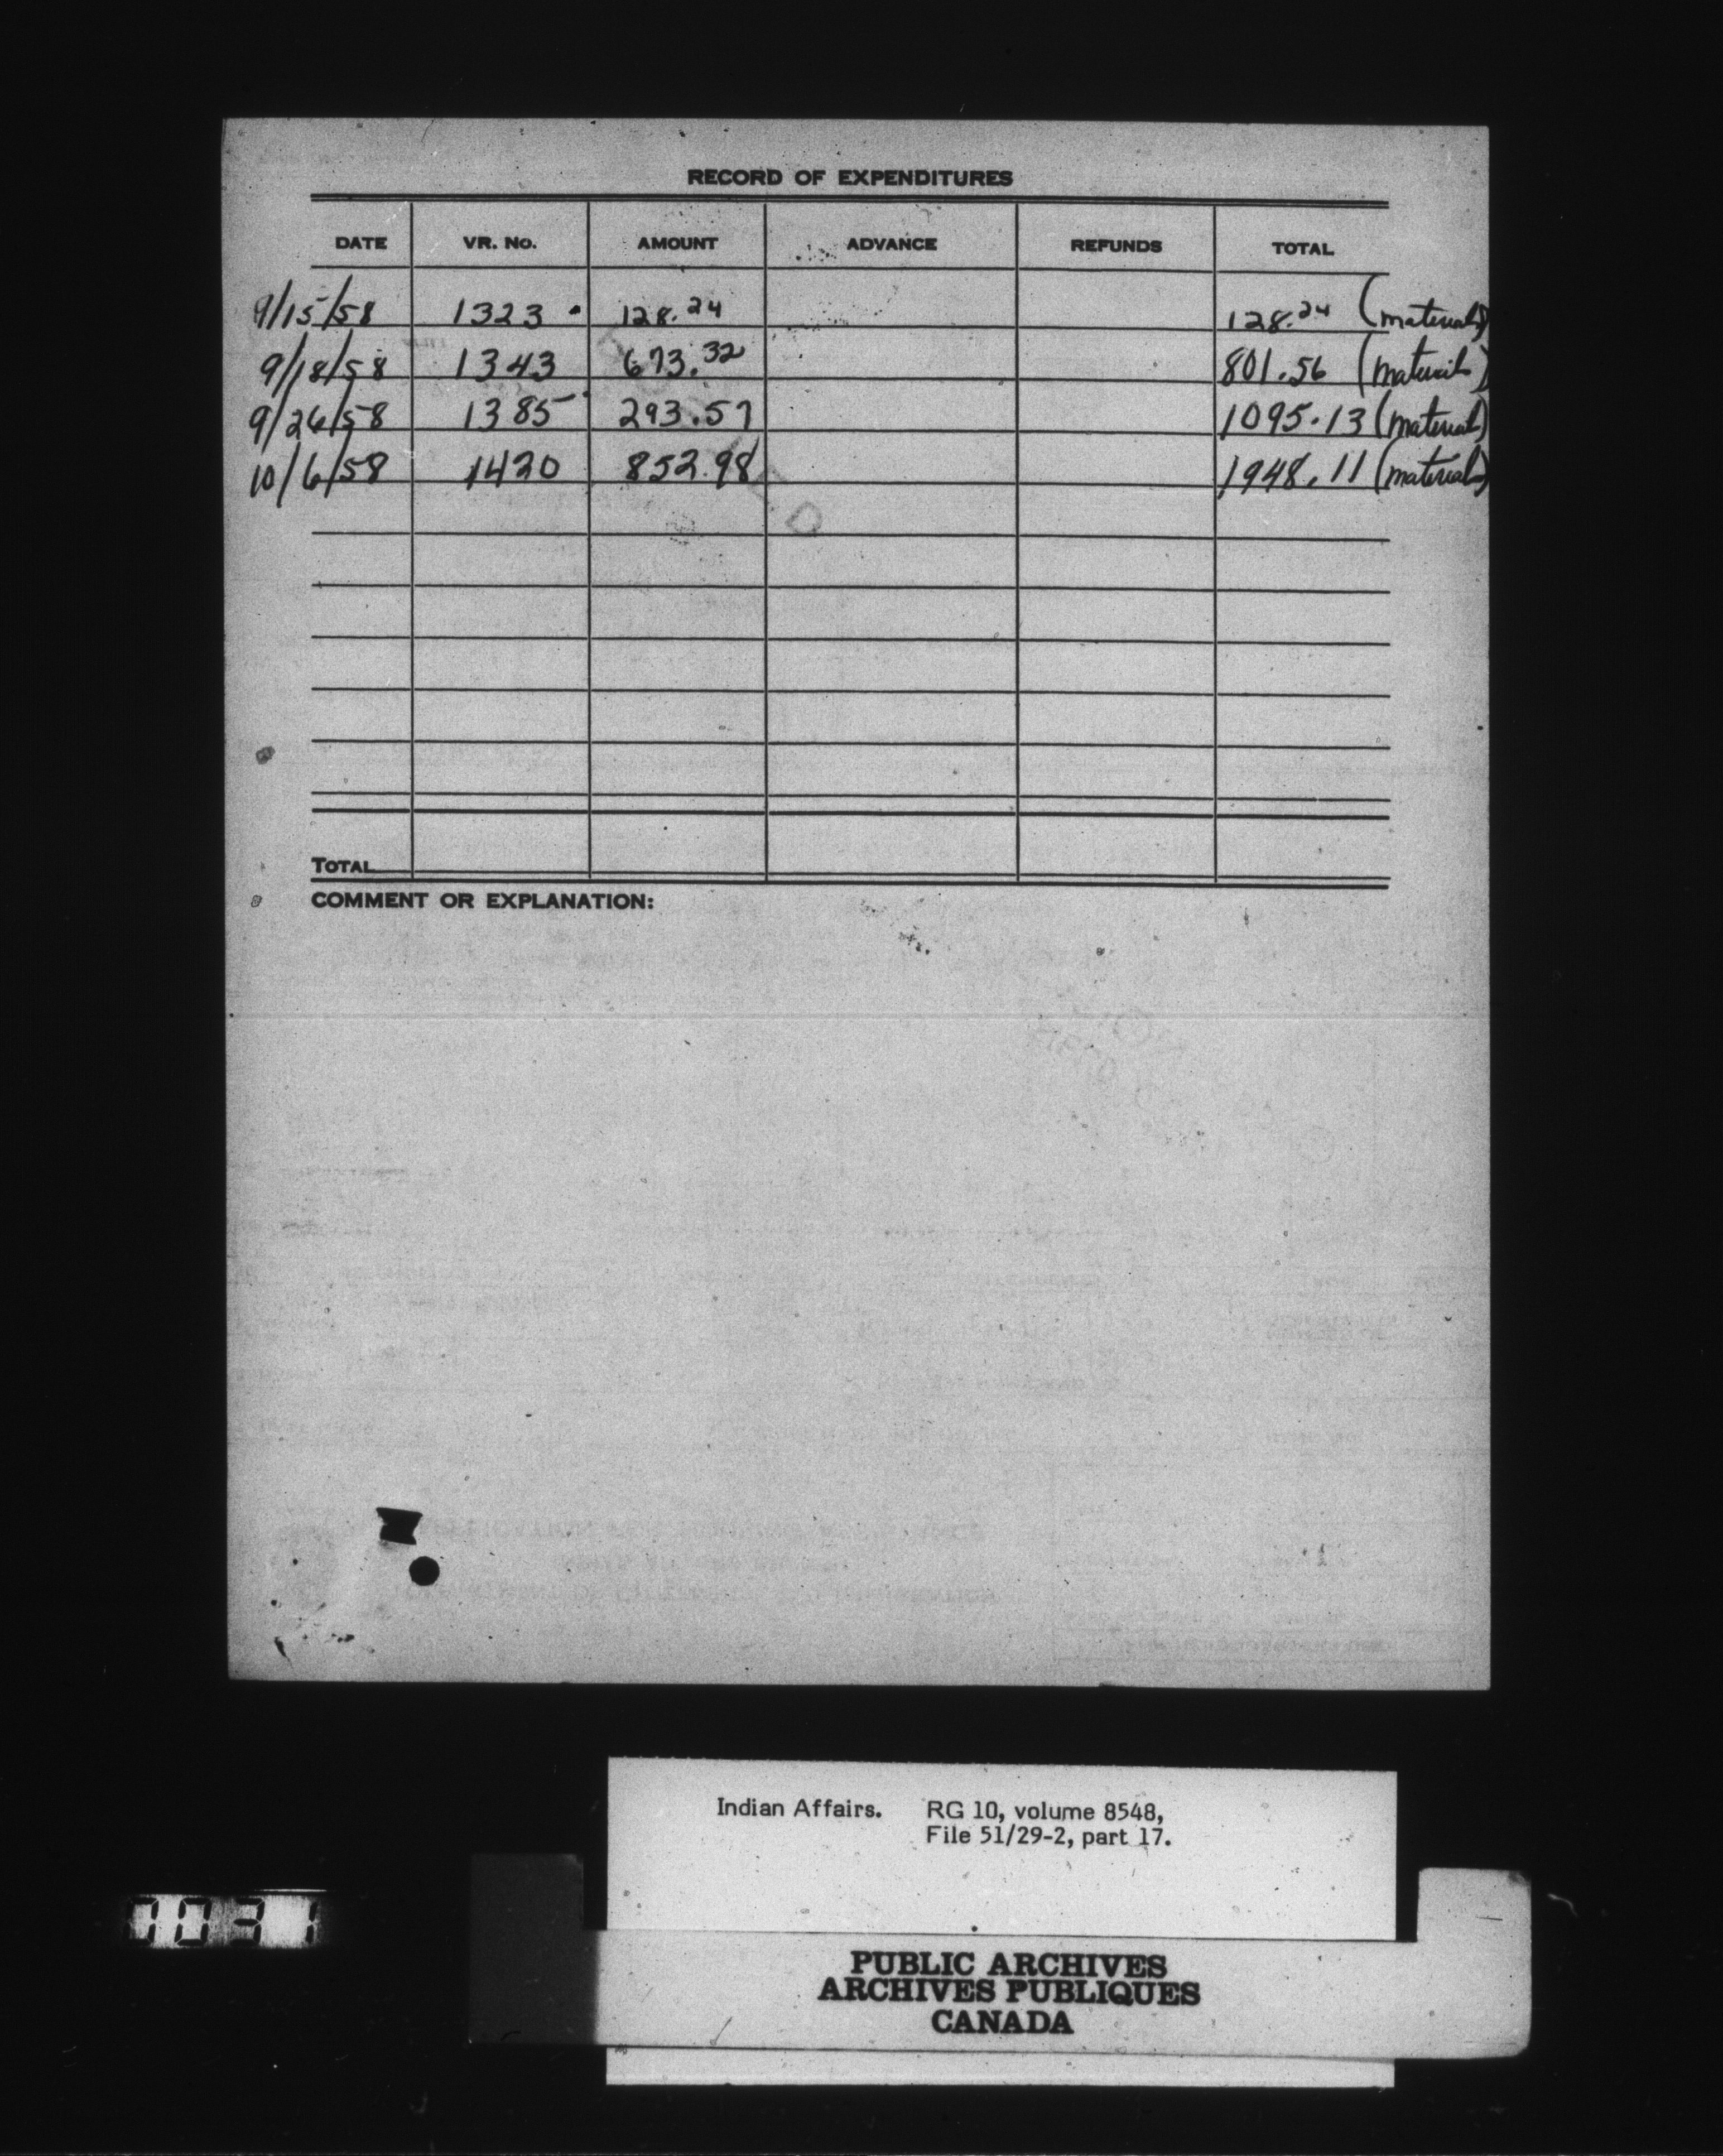 RECORD OF EXPENDITURES
DATE VR. No. AMOUNT ADVANCE REFUNDS TOTAL
9/15/58 1323 128.24 128.24 (materials)
9/18/58 1343 673.32 801.56 (materials)
9/26/58 1385 293.57 1095.13 (material)
10/6/58 1420 852.98 1948.11 (materials)
TOTAL
COMMENT OR EXPLANATION:
Indian Affairs. RG 10, volume 8548,
File 51/29-2, part 17.
PUBLIC ARCHIVES
ARCHIVES PUBLIQUES
CANADA